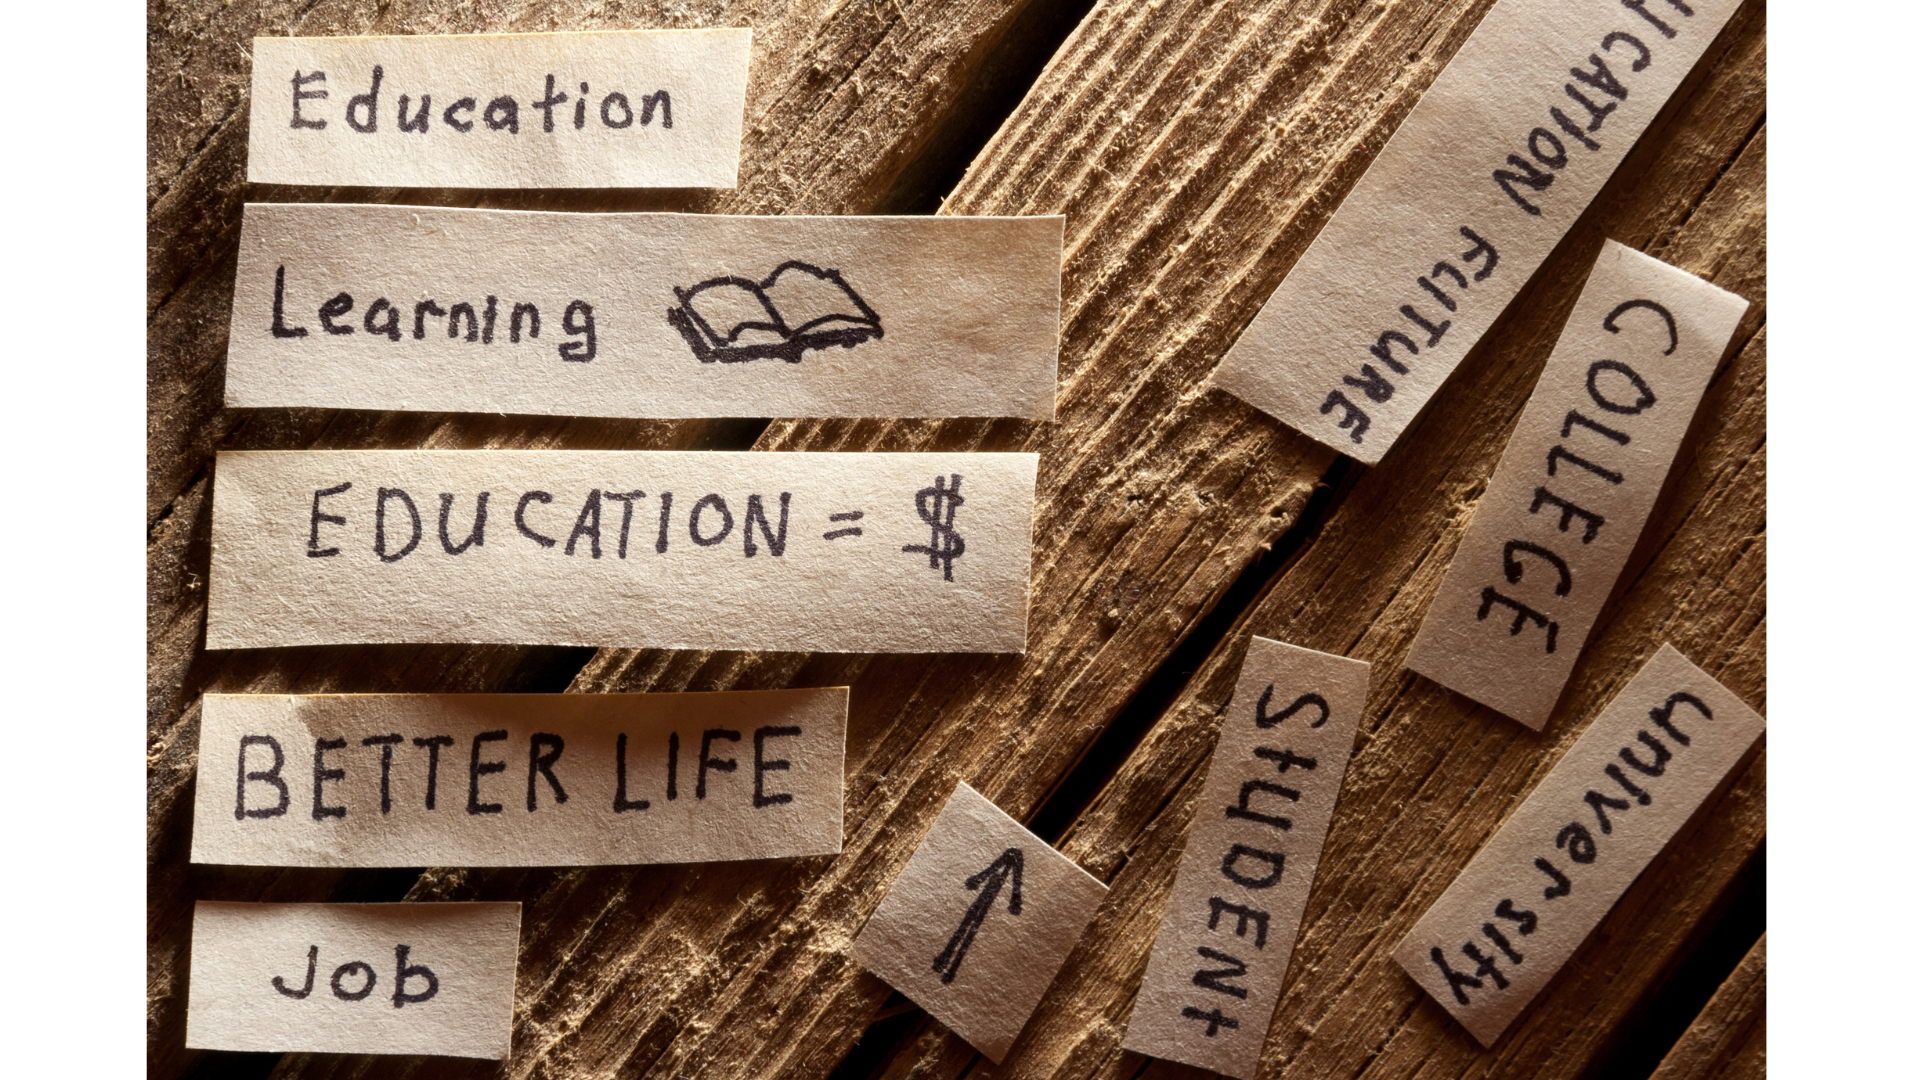 Education
Learning
EDUCATION = $
BETTER LIFE
Job
UCATION FUTURE
COLLEGE
STUDENT
University